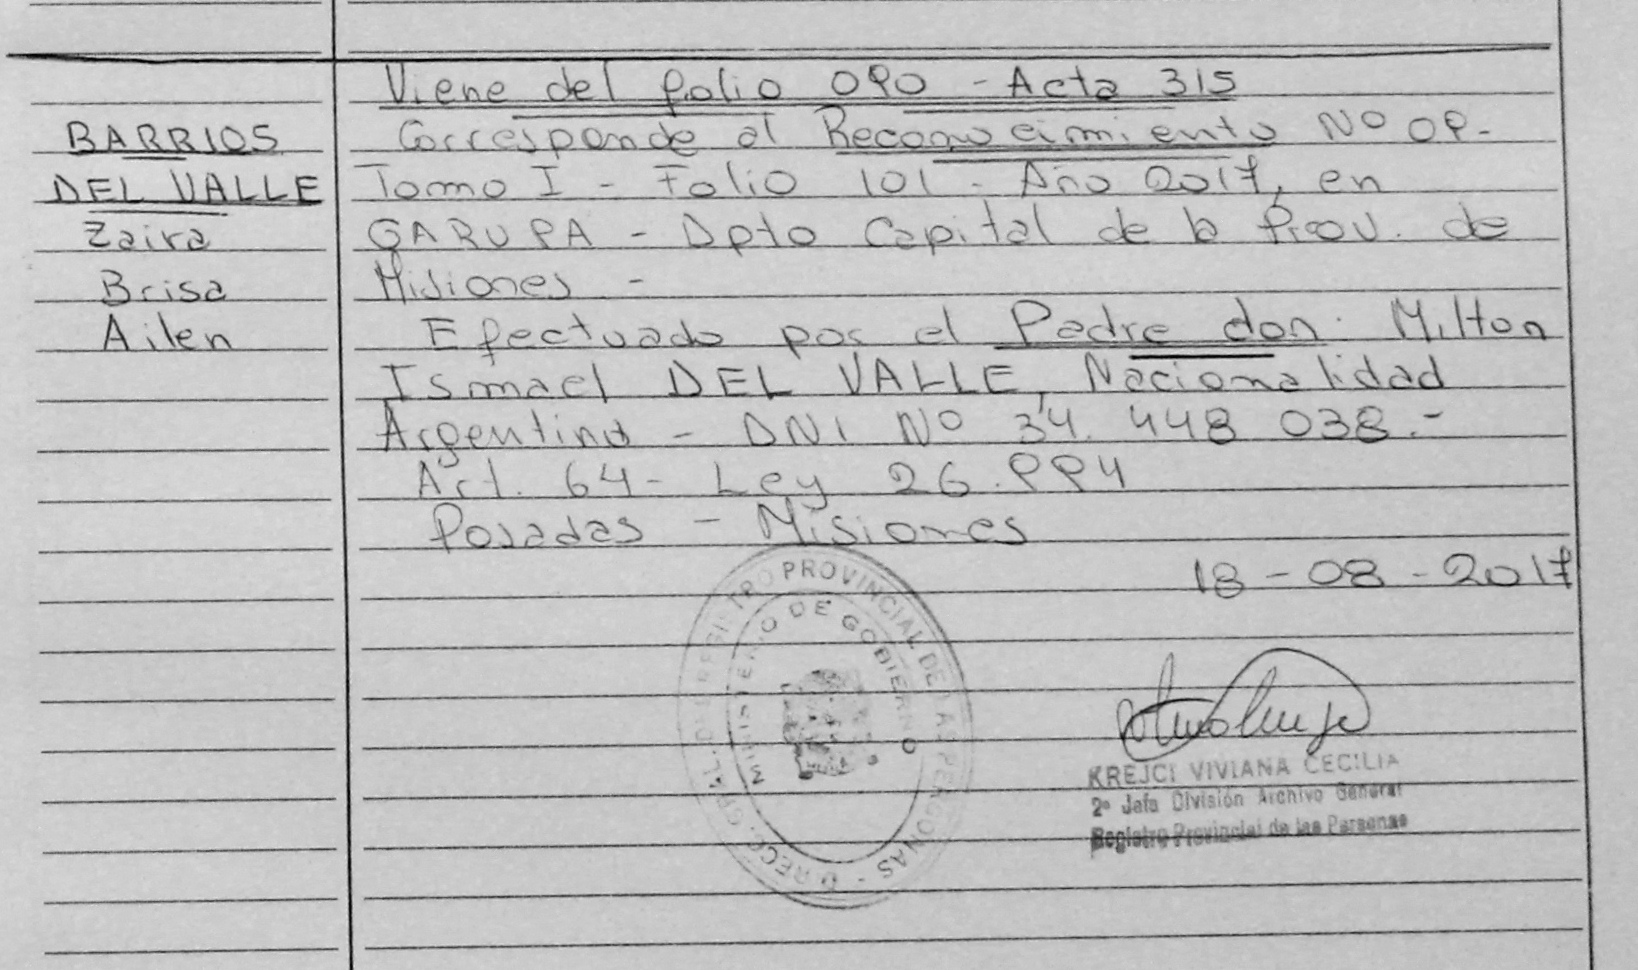 Viene del folio 090 - Acta 315
BARRIOS
DEL VALLE
Zaira
Brisa
Ailen
Corresponde al Reconocimiento Nº 09.-
Tomo I - Folio 101 - Año 2017, en
GARUPA - Dpto Capital de la Prov. de
Misiones -
Efectuado por el Padre don: Milton
Ismael DEL VALLE, Nacionalidad
Argentino - DNI Nº 34.448.038.-
Art. 64 - Ley 26.994
Posadas - Misiones
18-08-2017
DIRECC. GRAL. DEL REGISTRO PROVINCIAL DE LAS PERSONAS -
MINISTERIO DE GOBIERNO
KREJCI VIVIANA CECILIA
2º Jefa División Archivo General
Registro Provincial de las Personas